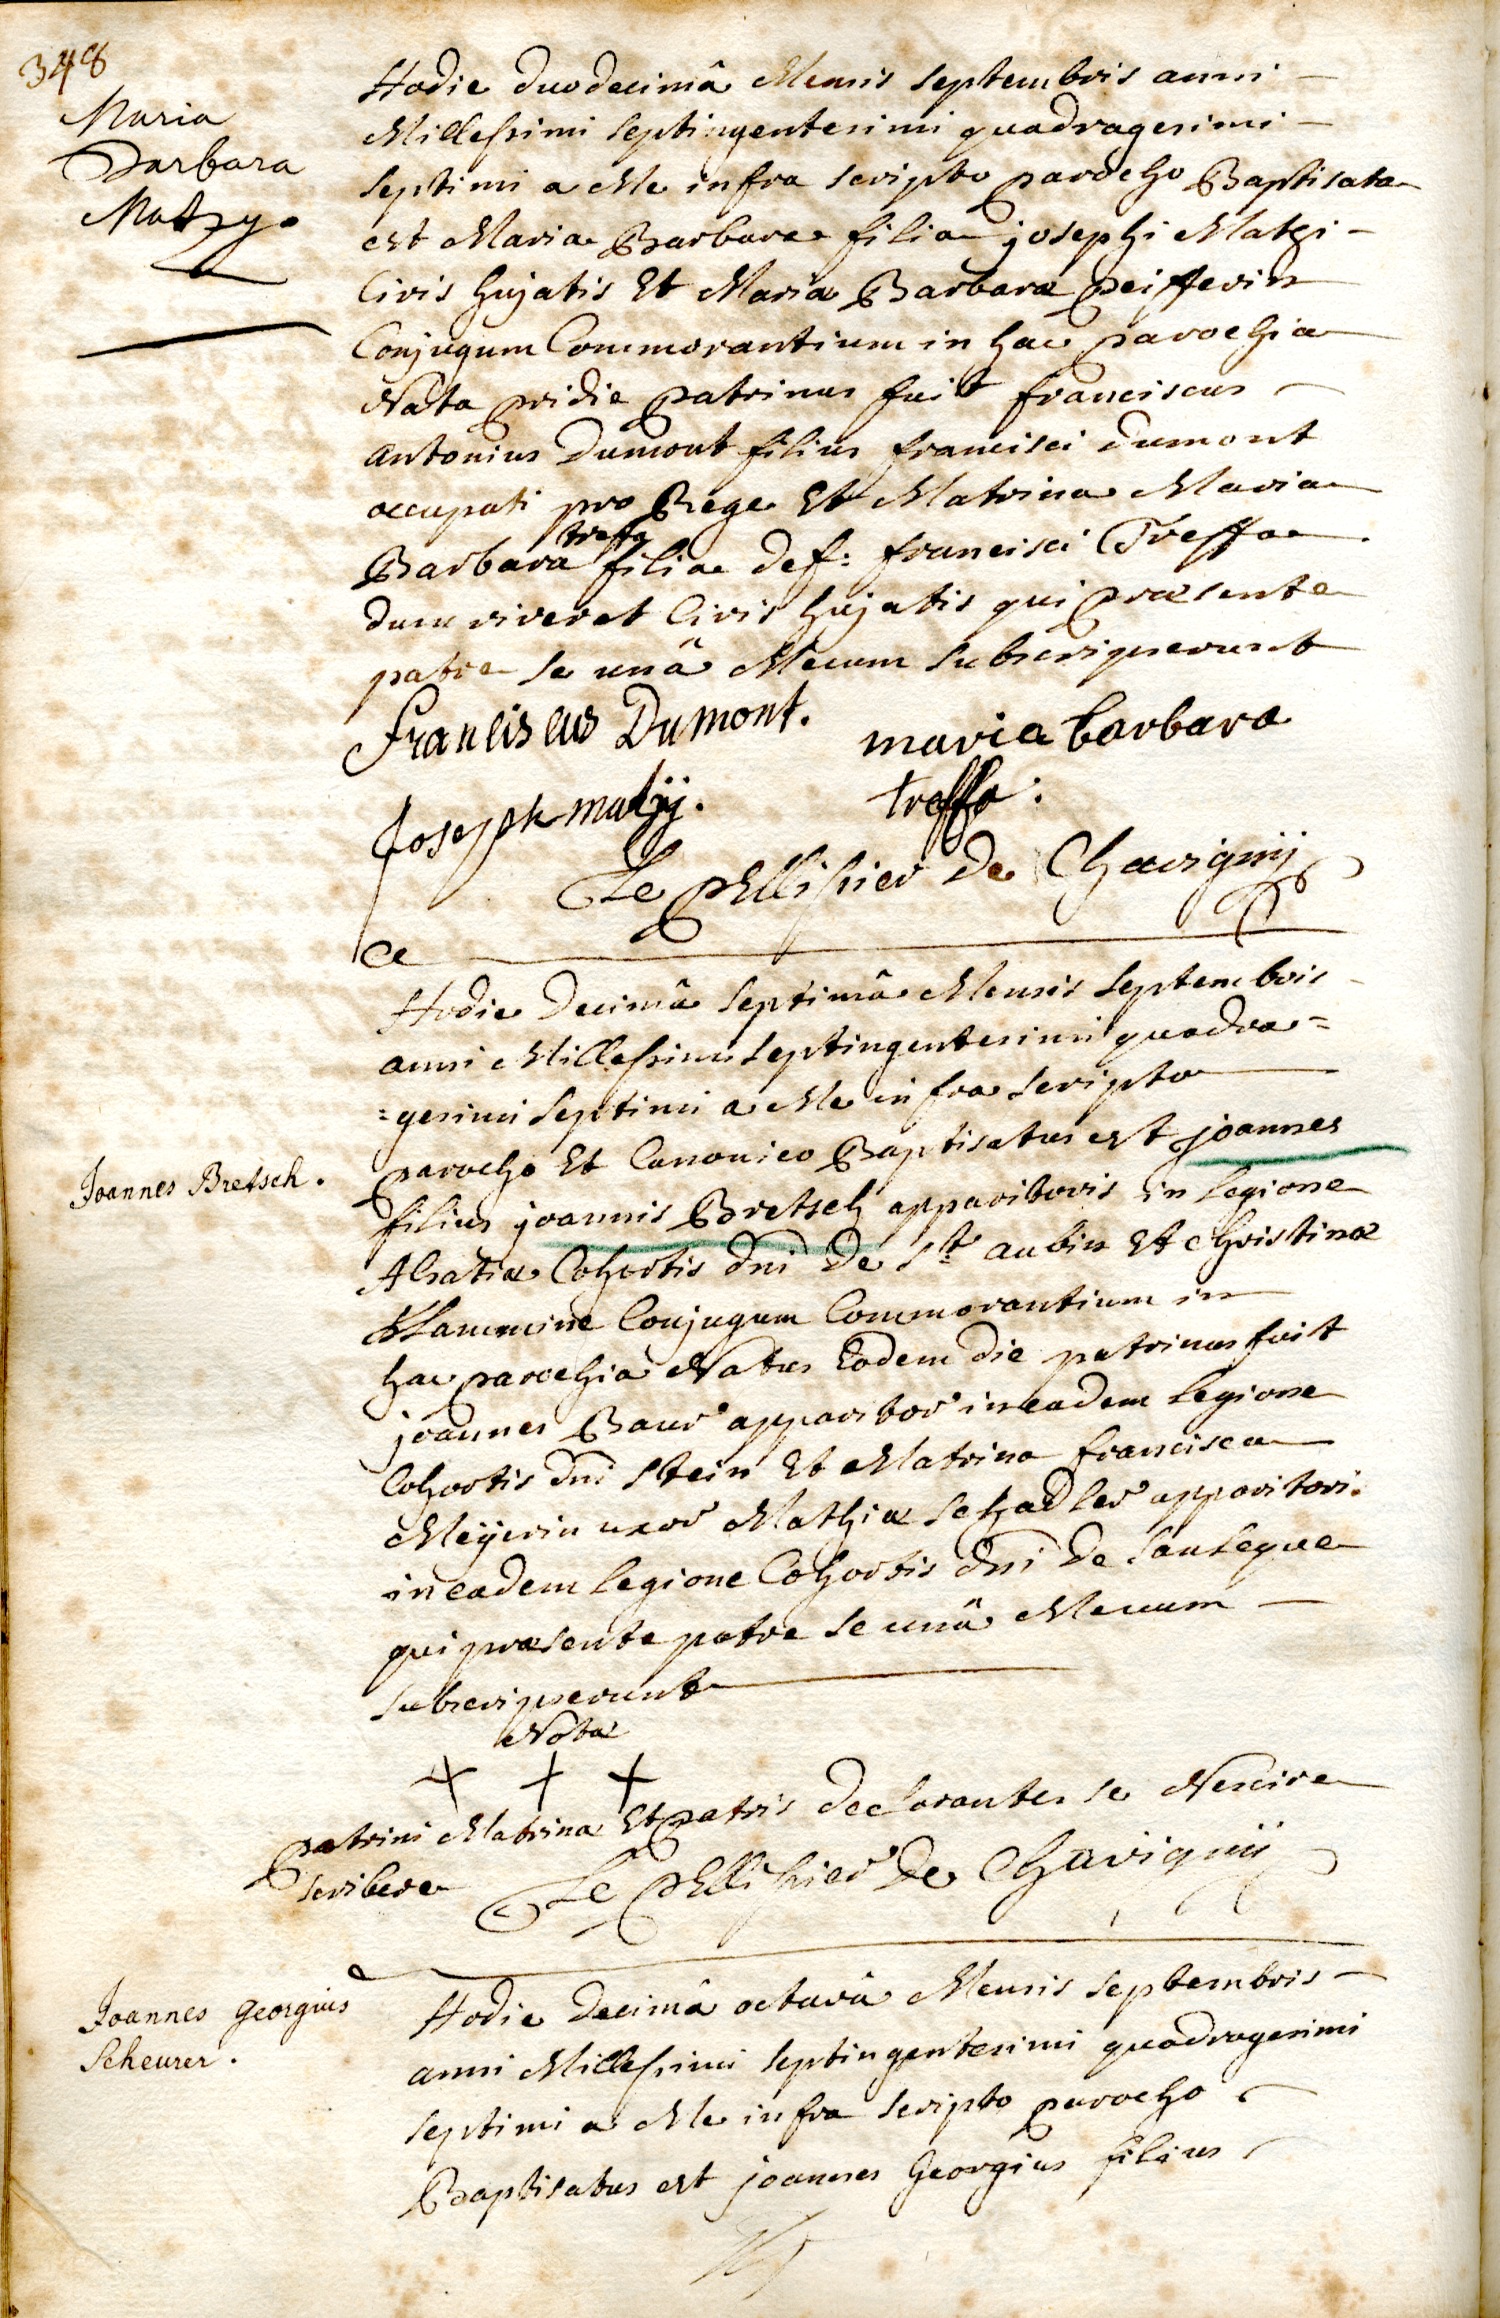 348
Maria
Barbara
Matzy.
Hodie duodecimâ Mensis septembris anni
Millessimi septingentesimi quadragesimi
septimi a Me infra scripto parocho Baptisata
est Maria Barbara filia josephi Matzi
Civis hujatis Et Mariæ Barbaræ peifferin
Conjugum Commorantium in hac parochia
Nata pridie patrinus fuit franciscus
antonius Dumont filius francisci dumont
occupati pro Rege Et Matrina Maria
treffa
Barbara filia def: francisci Treffa
dum viveret Civis hujatis qui præsente
patre se unâ Mecum subscripserunt
Franciscus Dumont. maria barbara
Joseph matzÿ. treffa:
Le pEllissier De Chavignÿ
Hodie Decimâ septimâ Mensis septembris
anni Millessimi septingentesimi quadra=
=gesimi septimi a Me infra scripto
parocho Et Canonico Baptisatus est joannes
Joannes Bretsch.
filius joannis Bretsch apparitoris in legione
Alsatiæ Cohortis dni De St aubin Et Christinæ
Conjugum Commorantium in
hac parochia Natus Eodem die patrinus fuit
joannes Baur apparitor in eadem legione
Cohortis dni stein Et Matrina francisca
Meÿerin uxor Mathiæ schadler apparitori.
in eadem legione Cohortis dni De
qui præsente patre se unâ Mecum
subscripserunt
Nota
+ + +
patrini Matrina Et patris declarantes se Nescire
scribere Le pEllissier De Chavignÿ
Joannes Georgius
Scheurer.
Hodie Decimâ octavâ Mensis septembris
anni Millessimi septingentesimi quadragesimi
septimi a Me infra scripto parocho
Baptisatus est joannes Georgius filius